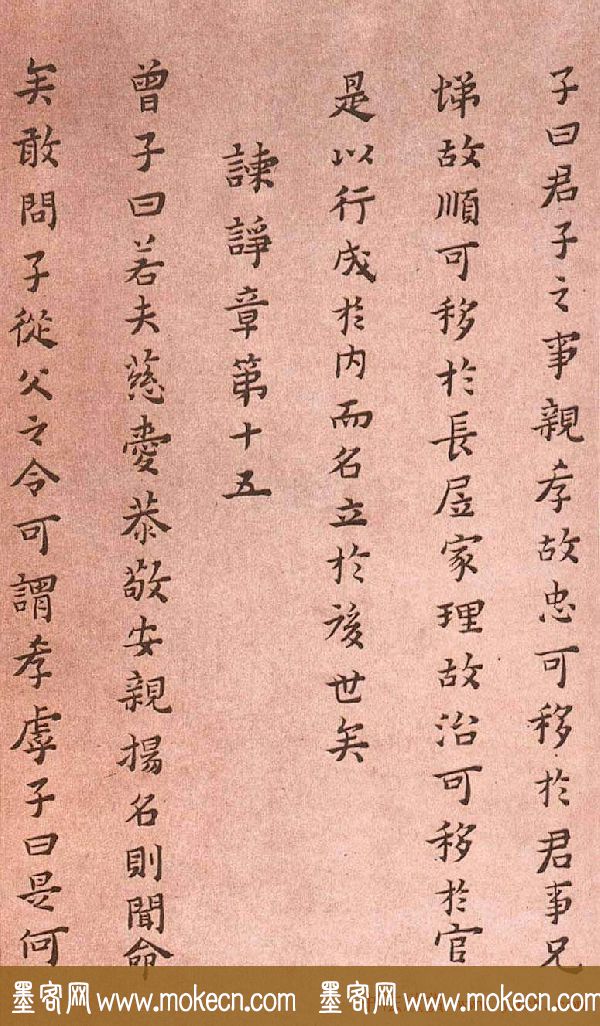 子曰君子之事親孝故忠可移於君事兄
悌故順可移於長居家理故治可移於官
是以行成於内而名立於後世矣
諫諍章第十五
曾子曰若夫慈愛恭敬安親揚名則聞命
矣敢問子從父之令可謂孝虖子曰是何
墨客网 www.mokecn.com 墨客网 www.mokecn.com